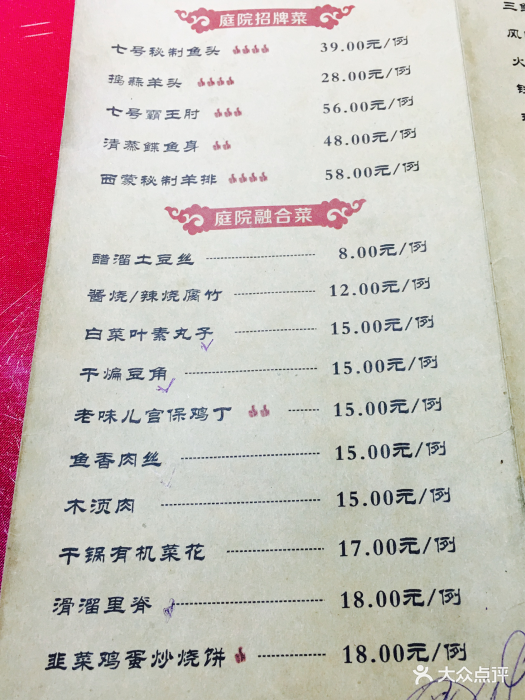 庭院招牌菜
七号秘制鱼头 39.00元/例
捣蒜羊头 28.00元/例
七号霸王肘 56.00元/例
清蒸鲽鱼身 48.00元/例
西蒙秘制羊排 58.00元/例
庭院融合菜
醋溜土豆丝 8.00元/例
酱烧/辣烧腐竹 12.00元/例
白菜叶素丸子 15.00元/例
干煸豆角 15.00元/例
老味儿宫保鸡丁 15.00元/例
鱼香肉丝 15.00元/例
木须肉 15.00元/例
干锅有机菜花 17.00元/例
滑溜里脊 18.00元/例
韭菜鸡蛋炒烧饼 18.00元/例
三
风
火
大众点评